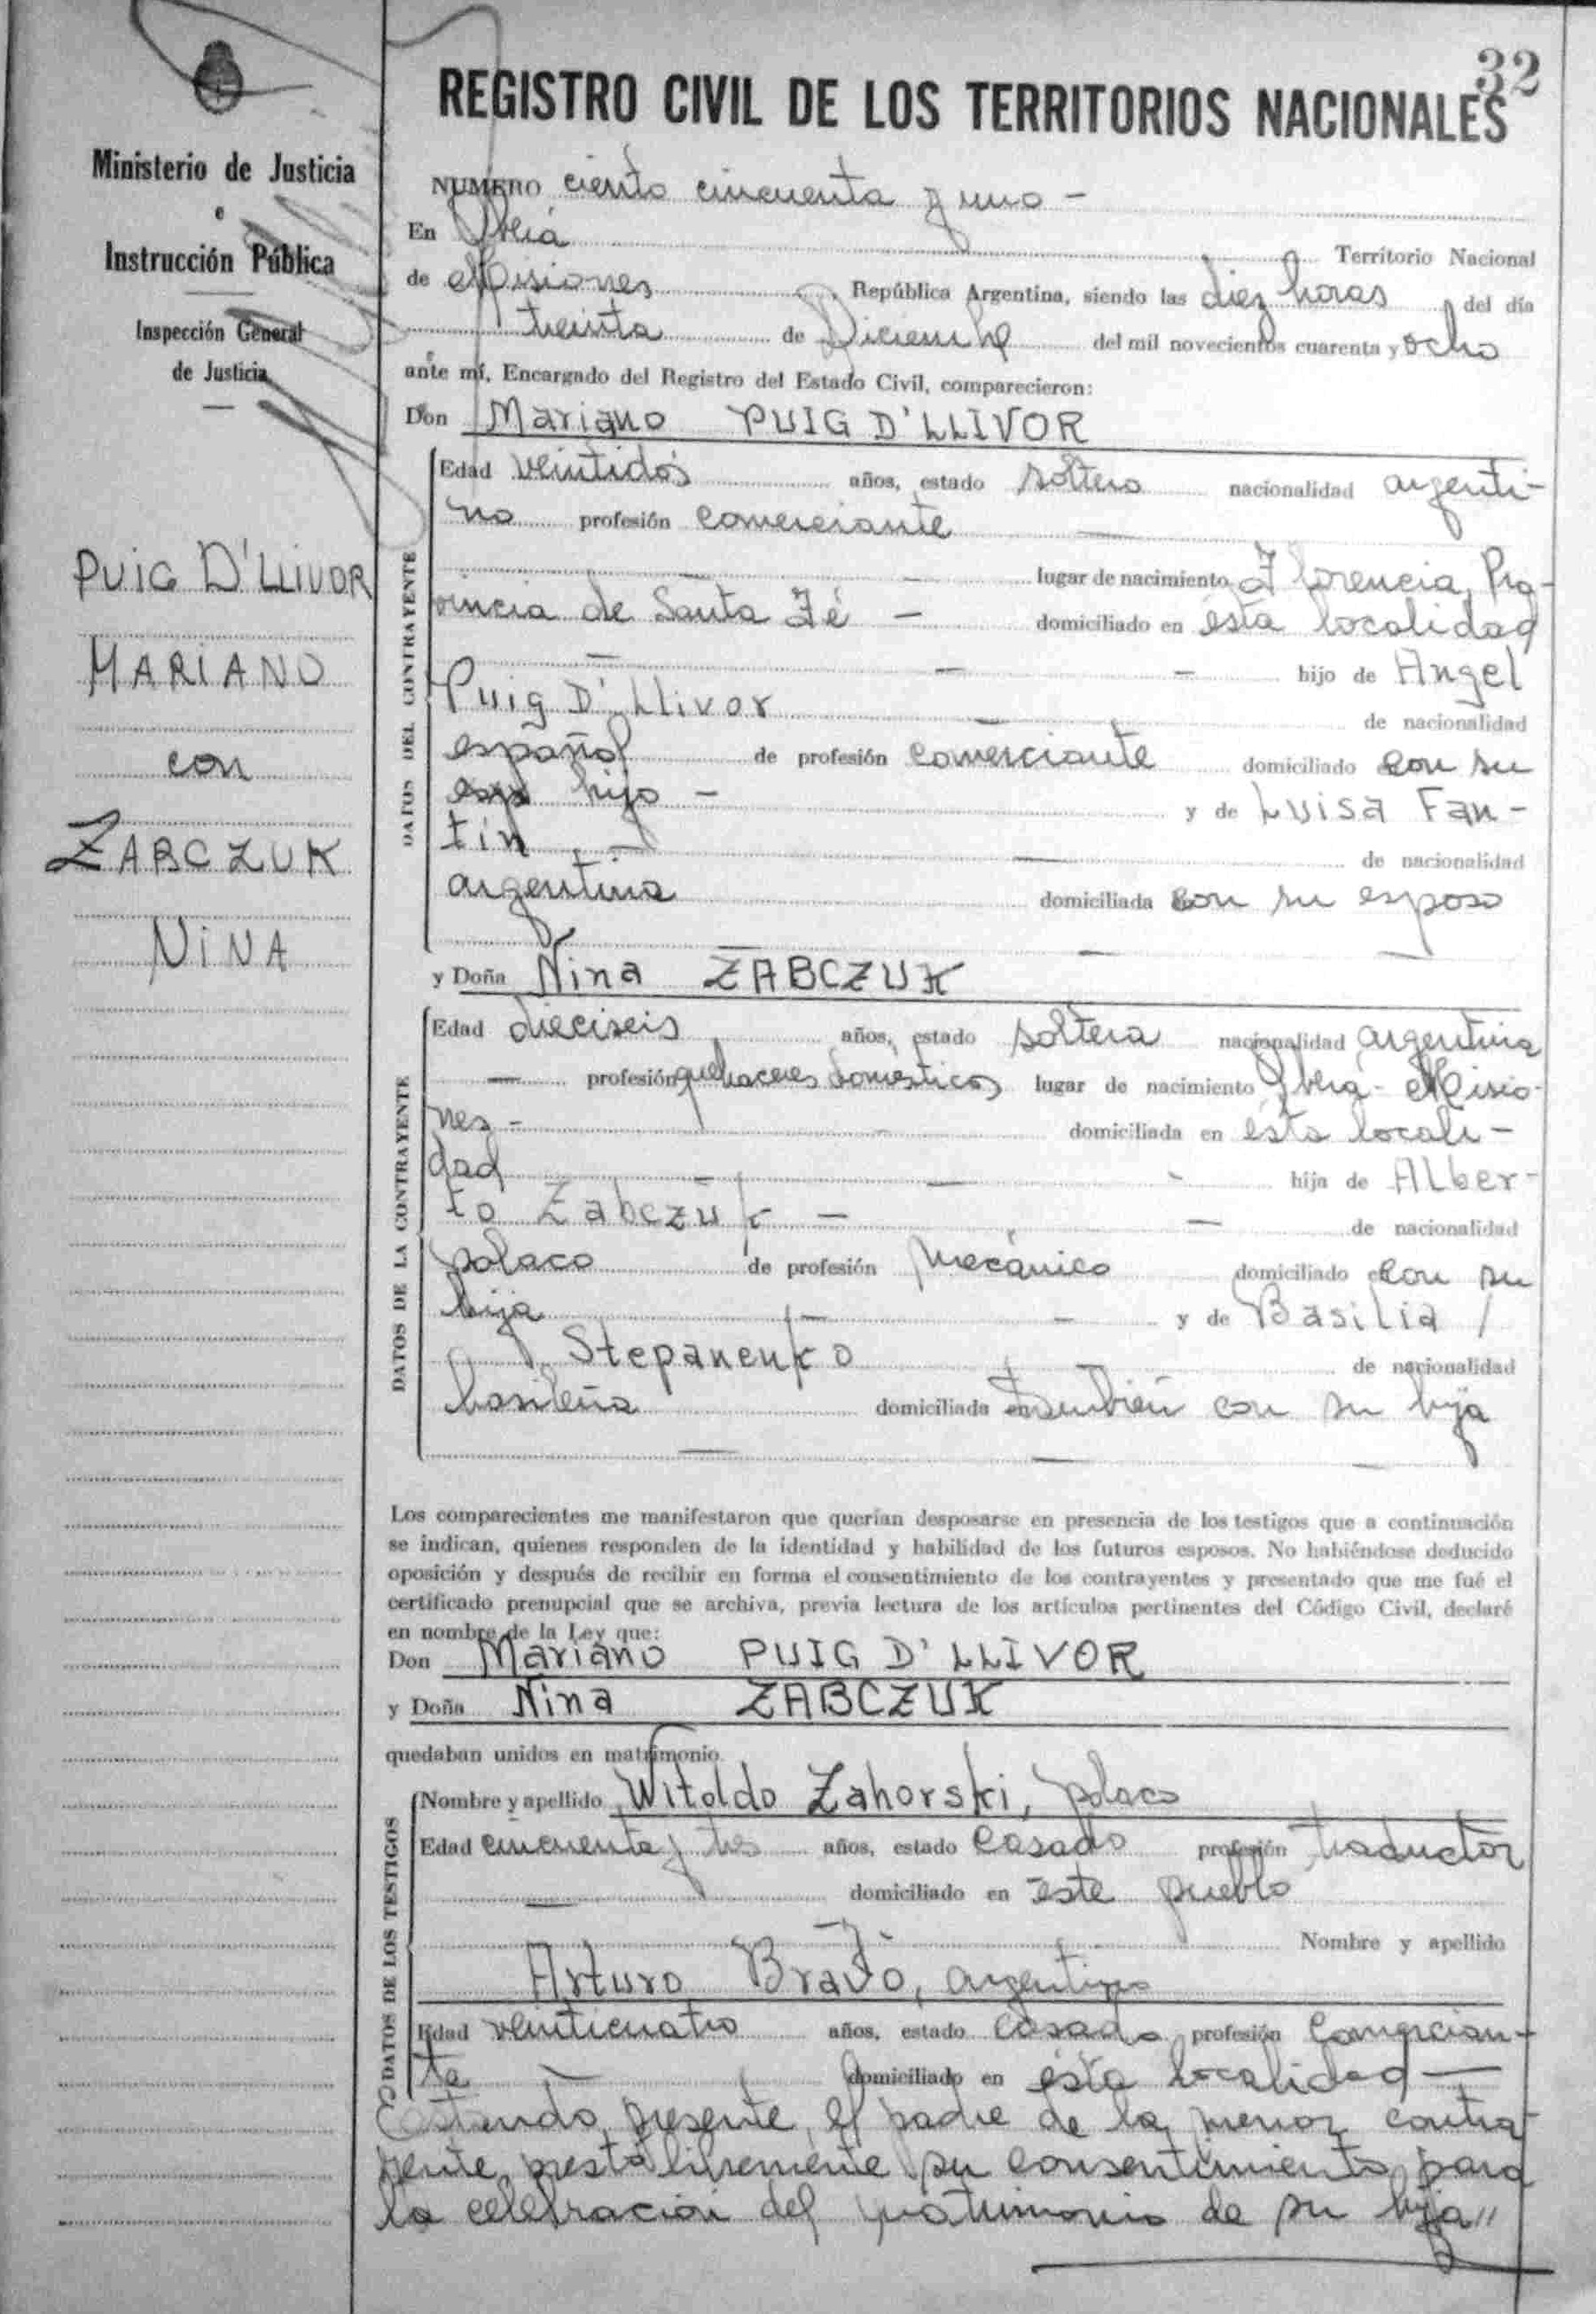 32
REGISTRO CIVIL DE LOS TERRITORIOS NACIONALES
Ministerio de Justicia
e
Instrucción Pública
Inspección General
de Justicia
PUIG D'LLIVOR
MARIANO
con
ZABCZUK
NINA
NUMERO ciento cincuenta y uno -
En Oberá Territorio Nacional
de Misiones República Argentina, siendo las diez horas del día
treinta de Diciembre del mil novecientos cuarenta y ocho
ante mí, Encargado del Registro del Estado Civil, comparecieron:
Don Mariano PUIG D'LLIVOR
DATOS DEL CONTRAYENTE
Edad veintidós años, estado soltero nacionalidad argenti-
no profesión comerciante —
— lugar de nacimiento Florencia, Pro-
vincia de Santa Fé — domiciliado en ésta localidad
— — — hijo de Angel
Puig D'Llivor — de nacionalidad
español de profesión comerciante domiciliado con su
hijo — y de Luisa Fan-
tín — — de nacionalidad
argentina domiciliada con su esposo
— — —
y Doña Nina ZABCZUK
DATOS DE LA CONTRAYENTE
Edad dieciseis años, estado soltera nacionalidad argentina
— profesión quehaceres domésticos lugar de nacimiento Oberá - Misio-
nes - — domiciliada en ésta locali-
dad — — - hija de Alber-
to Zabczuk — — de nacionalidad
polaco de profesión mecánico domiciliado con su
hija — — y de Basilia /
Stepanenko — de nacionalidad
brasileña domiciliada en también con su hija
— — —
Los comparecientes me manifestaron que querían desposarse en presencia de los testigos que a continuación
se indican, quienes responden de la identidad y habilidad de los futuros esposos. No habiéndose deducido
oposición y después de recibir en forma el consentimiento de los contrayentes y presentado que me fué el
certificado prenupcial que se archiva, previa lectura de los artículos pertinentes del Código Civil, declaré
en nombre de la Ley que:
Don Mariano PUIG D'LLIVOR
y Doña Nina ZABCZUK
quedaban unidos en matrimonio
DATOS DE LOS TESTIGOS
Nombre y apellido Witoldo Zahorski, polaco
Edad cincuenta y tres años, estado casado profesión traductor
— domiciliado en éste pueblo
— Nombre y apellido
Arturo Bravo, argentino
Edad veinticuatro años, estado casado profesión comercian-
te — domiciliado en ésta localidad —
Estando presente el padre de la menor contra-
yente, prestó libremente su consentimiento para
la celebración del matrimonio de su hija //